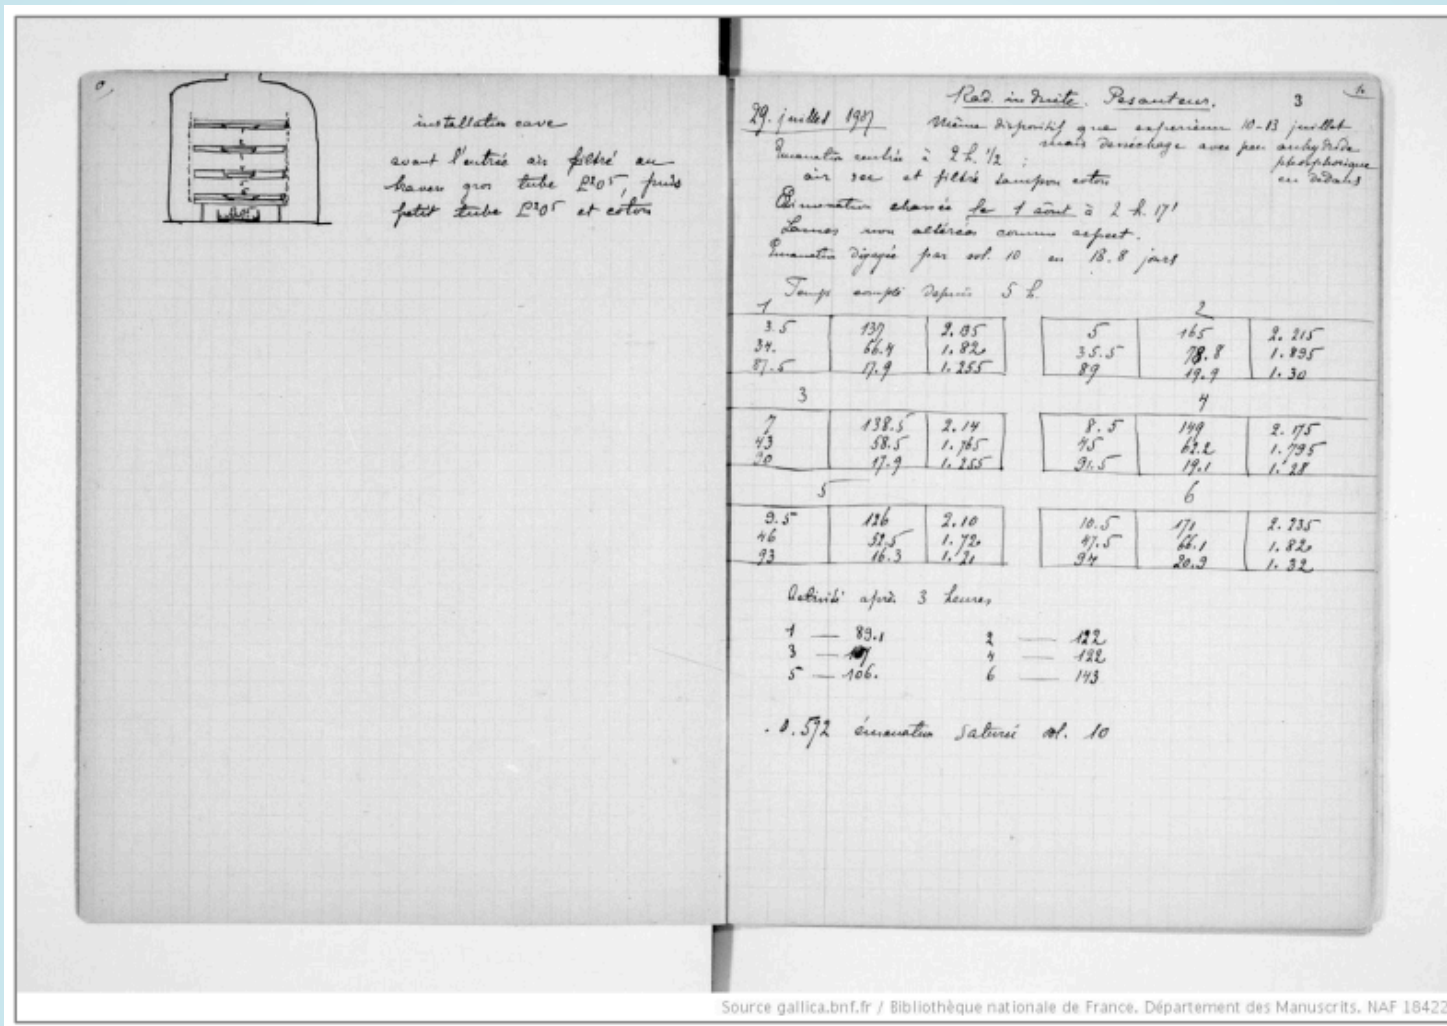 installation cave
avant l'entrée air filtré au
travers gros tube P²O⁵, puis
petit tube P²O⁵ et coton
Rad. induite. Pesanteur.
3
29. juillet 1907
Même dispositif que expérience 10-13 juillet
mais desséchage avec peu anhydride
phosphorique
en dedans
Emanation rentrée à 2 h. 1/2 ;
air sec et filtré tampon coton
Emanation chassée le 1 août à 2 h. 17'
Lames non altérées comme aspect.
Emanation dégagée par sol. 10 en 18.8 jours
Temps compté depuis 5 h.
1 2
3.5 137 2.135 5 165 2.215
34. 66.4 1.82 35.5 78.8 1.895
87.5 17.9 1.255 89 19.9 1.30
3 4
7 138.5 2.14 8.5 149 2.175
43 58.5 1.765 45 62.2 1.795
90 17.9 1.255 91.5 19.1 1.28
5 6
9.5 126 2.10 10.5 171 2.235
46 52.5 1.72 47.5 66.1 1.82
93 16.3 1.21 94 20.9 1.32
Activité après 3 heures
1 — 89.1 2 — 122
3 — 4 — 122
5 — 106. 6 — 143
0.572 émanation saturée sol. 10
Source gallica.bnf.fr / Bibliothèque nationale de France. Département des Manuscrits. NAF 18422